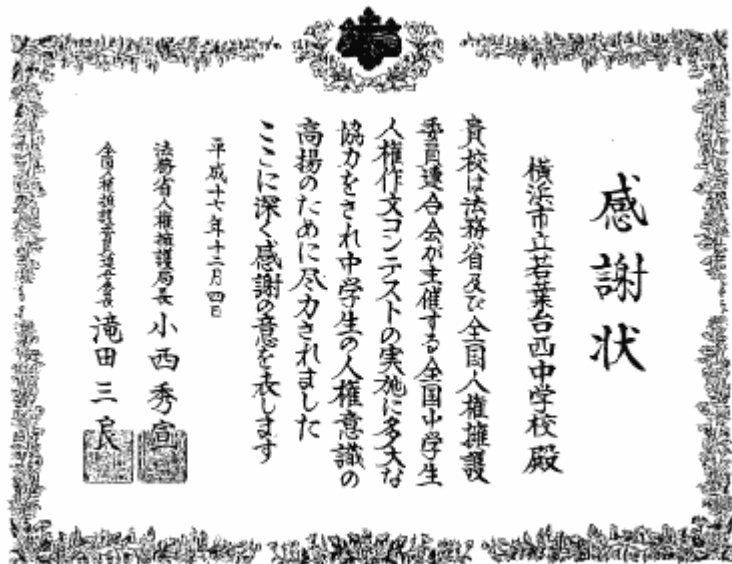 感謝状
横浜市立若葉台西中学校殿
貴校は法務省及び全国人権擁護
委員連合会が主催する全国中学生
人権作文コンテストの実施に多大な
協力をされ中学生の人権意識の
高揚のために尽力されました
ここに深く感謝の意を表します
平成十七年十二月四日
法務省人権擁護局長 小西秀宣
全国人権擁護委員連合会会長 滝田三良